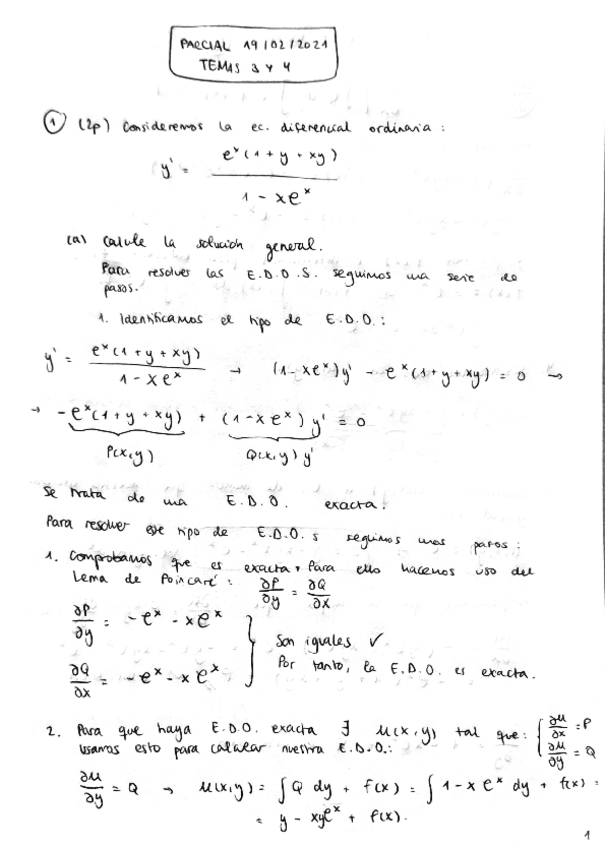 PARCIAL 19/02/2021
TEMAS 3 Y 4
1 (2p) Consideremos la ec. diferencial ordinaria:
y' = e^x(1 + y + xy) / 1 - xe^x
(a) Calcule la solución general.
Para resolver las E.D.O.S. seguimos una serie de
pasos.
1. Identificamos el tipo de E.D.O.:
y' = e^x(1 + y + xy) / 1 - xe^x → (1 - xe^x)y' - e^x(1 + y + xy) = 0 →
→ -e^x(1 + y + xy) + (1 - xe^x) y' = 0
P(x,y) Q(x,y) y'
Se trata de una E.D.O. exacta.
Para resolver este tipo de E.D.O.s seguimos unos pasos:
1. Comprobamos que es exacta. Para ello hacemos uso del
Lema de Poincaré: ∂P/∂y = ∂Q/∂x
∂P/∂y = -e^x - xe^x
Son iguales ✓
Por tanto, la E.D.O. es exacta.
∂Q/∂x = -e^x - xe^x
2. Para que haya E.D.O. exacta ∃ u(x,y) tal que: { ∂u/∂x = P
∂u/∂y = Q
Usamos esto para calcular nuestra E.D.O.:
∂u/∂y = Q → u(x,y) = ∫ Q dy + f(x) = ∫ 1 - x e^x dy + f(x) =
= y - xye^x + f(x).
1